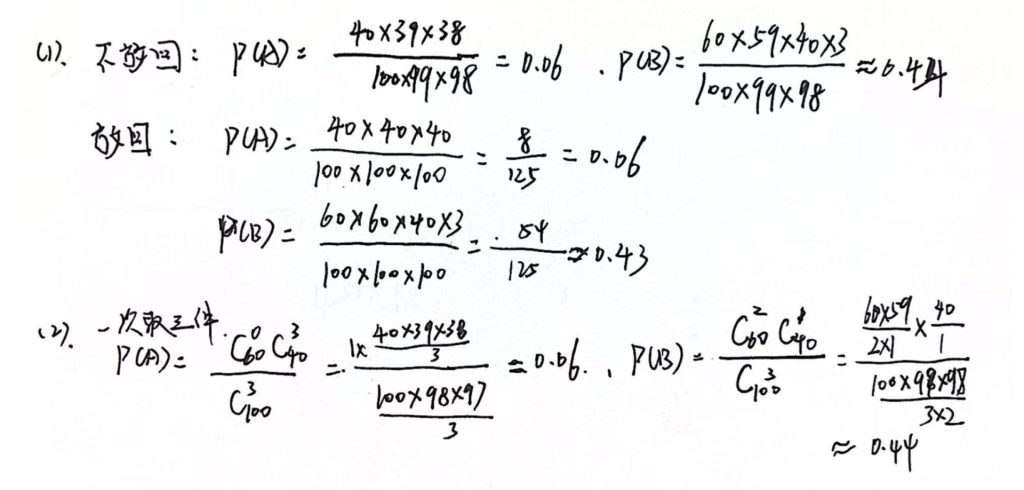 (1). 不放回: P(A) = (40×39×38)/(100×99×98) = 0.06 . P(B) = (60×59×40×3)/(100×99×98) ≈ 0.44
放回: P(A) = (40×40×40)/(100×100×100) = 8/125 = 0.06
P(B) = (60×60×40×3)/(100×100×100) = 54/125 ≈ 0.43
(2). 一次取三件.
P(A) = (C_60^0 C_40^3)/(C_100^3) = (1×(40×39×38)/3)/((100×98×97)/3) = 0.06. , P(B) = (C_60^2 C_40^1)/(C_100^3) = ((60×59)/(2×1)×40/1)/((100×98×98)/(3×2))
≈ 0.44